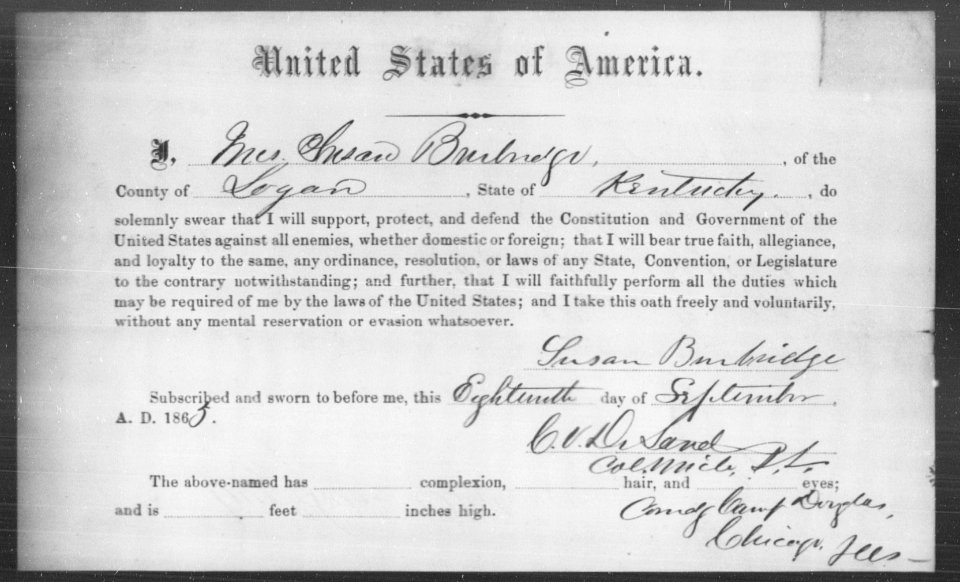 United States of America.
I, Mrs. Susan Burbridge, of the
County of Logan, State of Kentucky, do
solemnly swear that I will support, protect, and defend the Constitution and Government of the
United States against all enemies, whether domestic or foreign; that I will bear true faith, allegiance,
and loyalty to the same, any ordinance, resolution, or laws of any State, Convention, or Legislature
to the contrary notwithstanding; and further, that I will faithfully perform all the duties which
may be required of me by the laws of the United States; and I take this oath freely and voluntarily,
without any mental reservation or evasion whatsoever.
Susan Burbridge
Subscribed and sworn to before me, this Eighteenth day of September
A. D. 1865.
C. V. De Land
Col. Mich.
The above-named has complexion, hair, and eyes;
Comdg Camp Douglas,
and is feet inches high.
Chicago, Ills